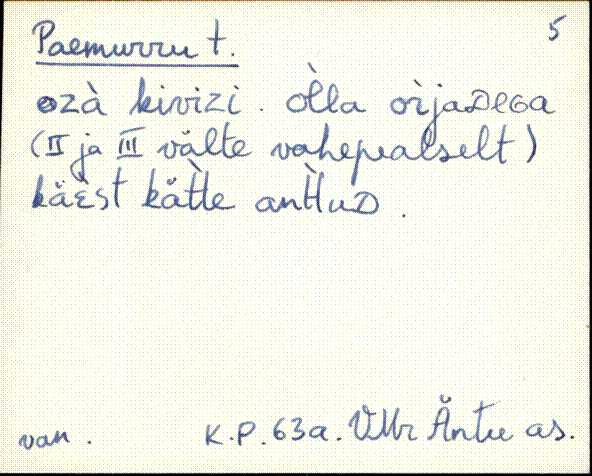 5
Paemurru t.
ozà kivizi. òlla òrjaDEGa
(II ja III välte vahepealselt)
käèst kätte antHuD.
van. K.P. 63a. VMr Äntu as.